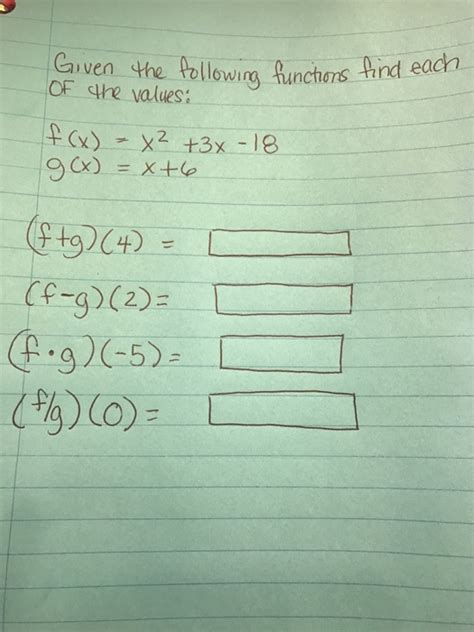 Given the following functions find each
OF the values:
f(x) = x² +3x -18
g(x) = x+6
(f+g)(4) =
(f-g)(2)=
(f•g)(-5)=
(f/g)(0)=